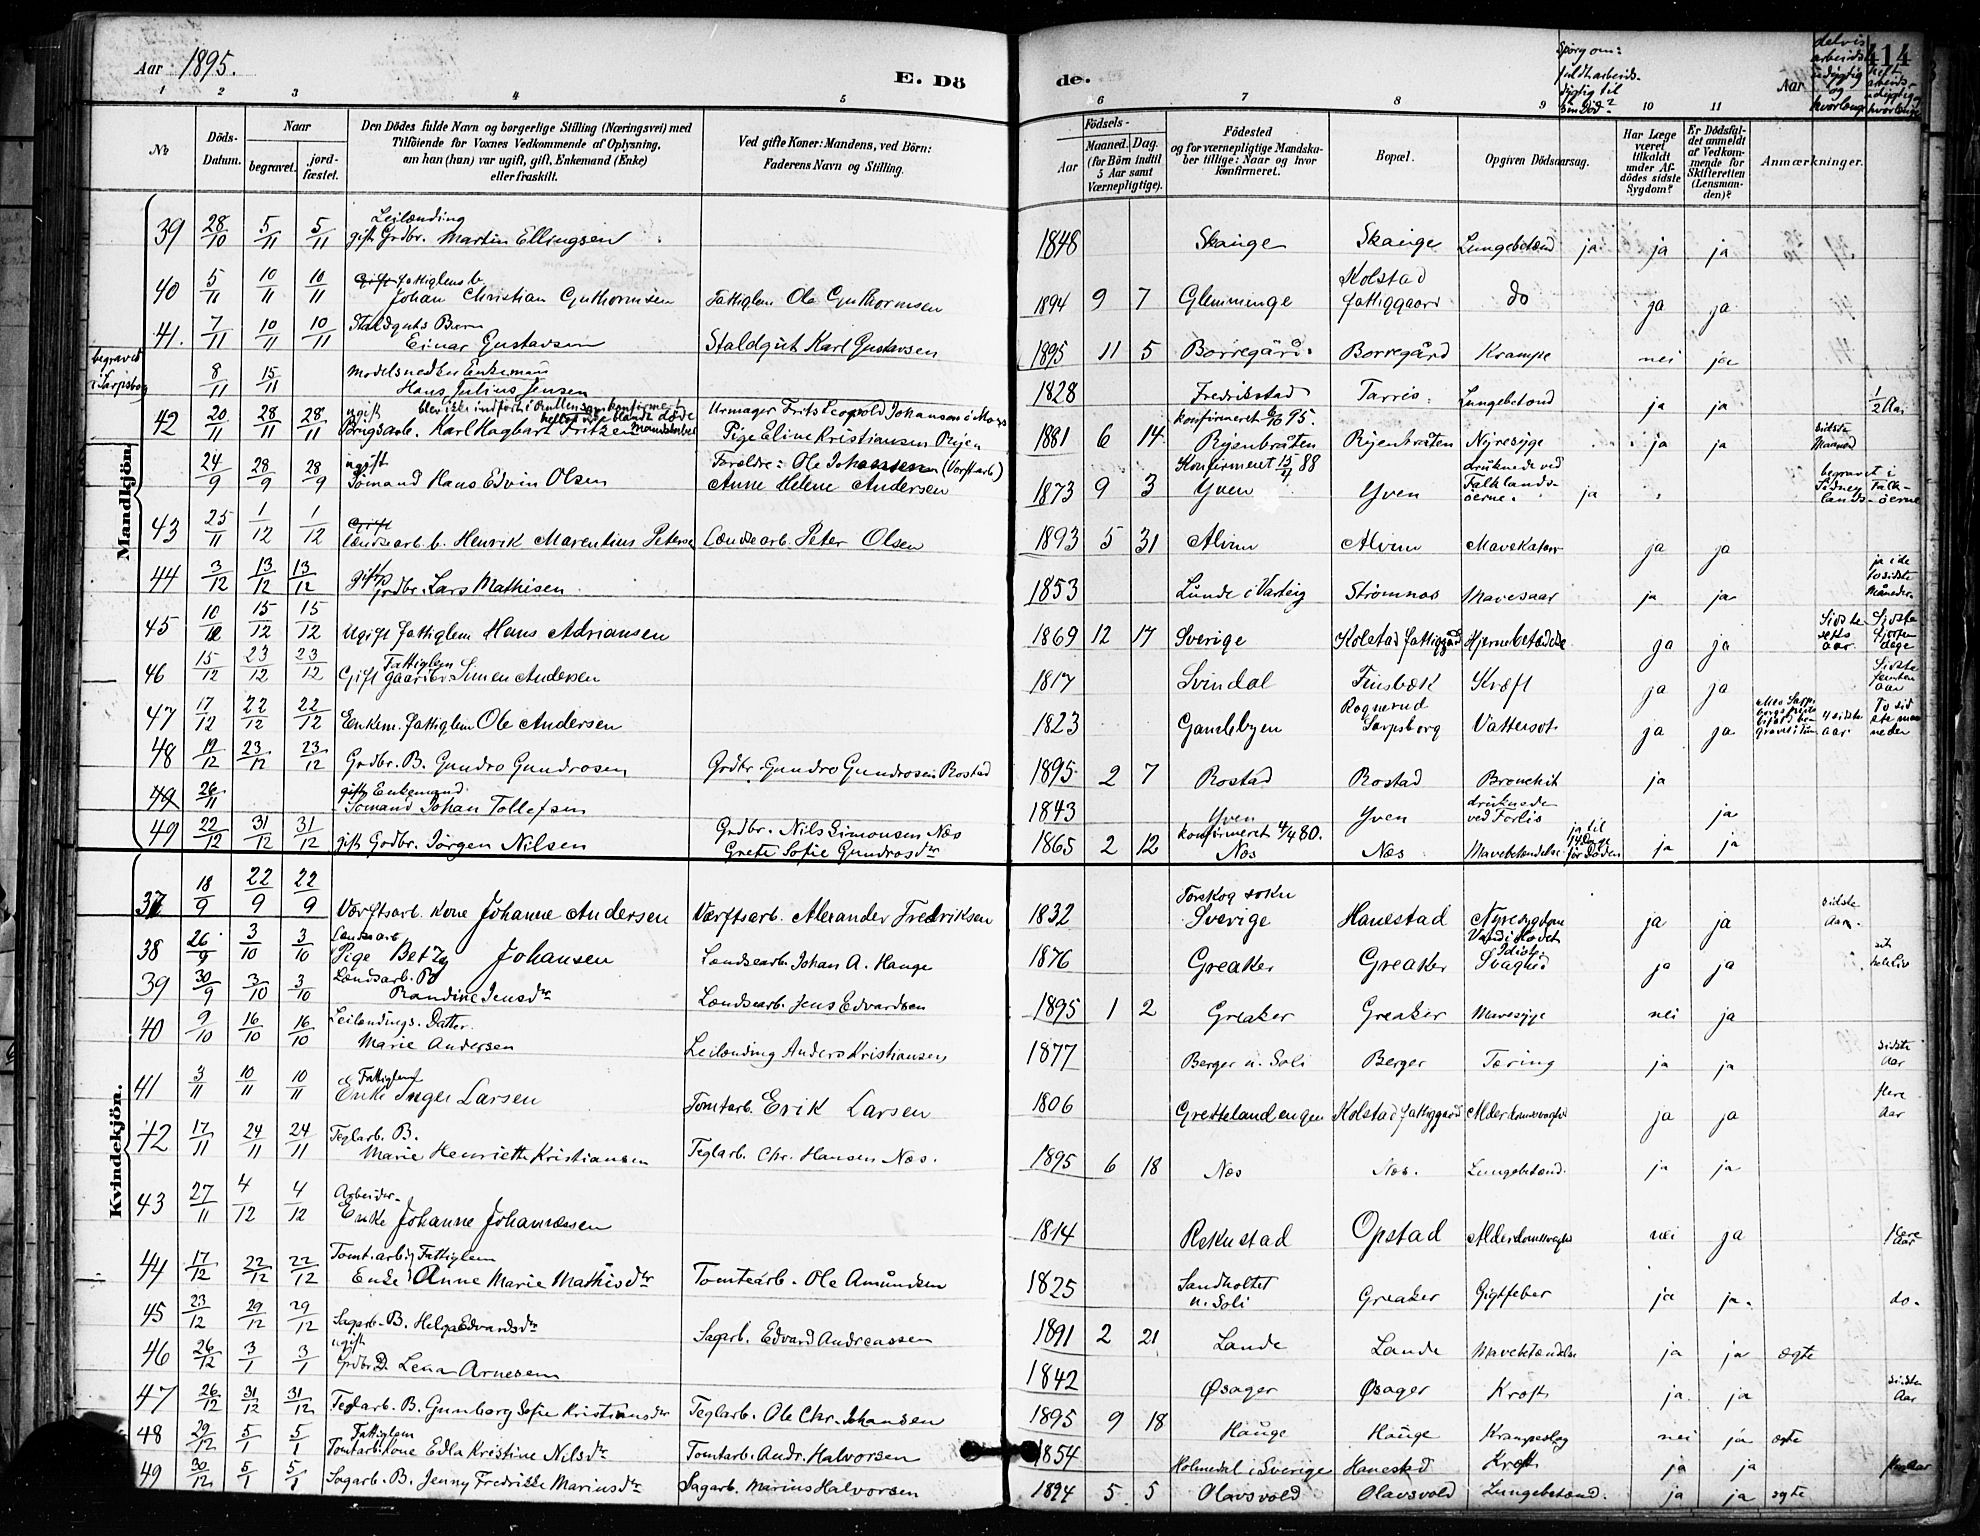 Aar 1895.
E. Dö
de.
Aar
414
1 2 3 4 5 6 7 8 9 10 11
№
Döds-Datum.
Naar
begravet.
jord-fæstet.
Den Dödes fulde Navn og borgerlige Stilling (Næringsvei) med
Tilföiende for Voxnes Vedkommende af Oplysning,
om han (hun) var ugift, gift, Enkemand (Enke)
eller fraskilt.
Ved gifte Koner: Mandens, ved Börn:
Faderens Navn og Stilling.
Födsels-
Aar
Maaned. Dag.
(for Börn indtil 5 Aar samt Værnepligtige).
Födested
og for værnepligtige Mandskaber tillige: Naar og hvor konfirmeret.
Bopæl.
Opgiven Dödsaarsag.
Har Læge været tilkaldt under Afdödes sidste Sygdom?
Er Dödsfaldet anmeldt af Vedkommende for Skifteretten (Lensmanden)?
Anmærkninger.
Mandkjön.
39 28/10 5/11 5/11 Leilænding gift Grdbr. Martin Ellingsen 1848 Skauge Skauge Lungebetænd ja ja ja
40 5/11 10/11 10/11 Fattiglems b. Johan Christian Guthormsen Fattiglem Ole Guthormsen 1894 9 7 Glemminge Kolstad fattiggaard do ja ja
41. 7/11 10/11 10/11 Staldguts Barn Einar Gustavsen Staldgut Karl Gustavsen 1895 11 5 Borregård Borregård Krampe nei ja
begravet i Sarpsborg 8/11 15/11 Modelsnedker Enkemand Hans Julius Jensen 1828 Fredrikstad Tarris Lungebetænd ja ja 1/2 Aar
42 20/11 28/11 28/11 ugift Brugsarb. Karl Hagbart Fritzen Urmager Frits Leopold Johansen i Moss Pige Eline Kristiansen Ryen 1881 6 14 Ryenbråten Ryenbråten Nyresyge ja ja sidste Maaned
24/9 28/9 28/9 ugift Sömand Hans Edvin Olsen Forældre: Ole Johannesen (Værftarb) Anne Helene Andersen 1873 9 3 Konfirmeret 15/4 88 Yven Yven druknede ved Falklandsöerne. ja begravet i Sidney Falklands-öerne
43 25/11 1/12 1/12 Landsarb. b. Henrik Marentius Petersen Landsearb. Peter Olsen 1893 5 31 Alvim Alvim Mavekatarr ja ja
44 3/12 13/12 13/12 gift Grdbr. Lars Mathisen 1853 Lunde i Varteig Strömnæs Mavesaar ja ja ja i de to sidste Måneder
45 10/12 15/12 15/12 Ugift Fattiglem Hans Adriansen 1869 12 17 Sverige Kolstad fattiggård Hjernebetændelse ja ja Sidste seks aar Sidste fjorten dage
46 15/12 23/12 23/12 Fattiglem Gift gaardbr Simen Andersen 1817 Svindal Finsbæk Kræft ja ja Sidste femten aar
47 17/12 22/12 22/12 Enkem. Fattiglem Ole Andersen 1823 Gamlebyen Rognerud Sarpsborg Vattersot ja ja 4 sidste aar To sidste maaneder
48 19/12 23/12 23/12 Grdbr. B. Gundro Gundrosen Grdbr. Gundro Gundrosen Rostad 1895 2 7 Rostad Rostad Bronchit ja
49 26/11 gift Enkemand Sömand Johan Tollefsen 1843 Yven Yven druknede ved Forlis ja
49 22/12 31/12 31/12 gift Grdbr. Jörgen Nilsen Grdbr. Nils Simonsen Næs Grete Sofie Gundrosdtr 1865 2 12 konfirmeret 4/4 80. Næs Næs Mavebetændelse ja til 14 Dage för Döden ja ja
Kvindekjön.
37 18/9 22/9 22/9 Værftsarb. Kone Johanne Andersen Værftsarb. Alexander Fredriksen 1832 Torskog sokn Sverige Hanestad Nyresygdom ja ja sidste Aar
38 26/9 3/10 3/10 Landsarb Pige Betzy Johansen Landsearb. Johan A. Hauge 1876 Greaker Greaker Vand i Hovdet Idiot Svaghed ja ja
39 30/9 3/10 3/10 Landsarb. B. Randine Jensdtr Landsearb. Jens Edvardsen 1895 1 2 Greaker Greaker Mavesyge nei ja
40 9/10 16/10 16/10 Leilendings. Datter. Marie Andersen Leilænding Anders Kristiansen 1877 Berger u. Soli Berger Tæring ja ja sidste Aar
41 3/11 10/11 10/11 Fattiglem Enke Inger Larsen Tomtarb. Erik Larsen 1806 Grettelandengen Kolstad fattiggård Alderdomssvaghed ja ja flere Aar
42 17/11 24/11 24/11 Teglarb. B. Marie Henriette Kristiansen Teglarb. Chr. Hansen Næs. 1895 6 18 Næs Næs. Lungebetænd. ja ja
43 27/11 4/12 4/12 Arbeider- Enke Johanne Johannessen 1814 Rekustad Opstad Alderdomssvaghed nei ja flere Aar
44 17/12 22/12 22/12 Tomtarbr Fattiglem Enke Anne Marie Mathisdtr Tomtearb. Ole Amundsen 1825 Sandholtet u. Soli Greaker Gigtfeber ja ja. do.
45 23/12 29/12 29/12 Sagarb. B. Helga Edvardsdtr Sagarb. Edvard Andreassen 1891 2 21 Lande Lande Mavebetændelse ja ja ægte
46 26/12 3/1 3/1 ugift Grdbr D. Lena Arnesen 1842 Øsager Øsager Kræft ja ja sidste Aar
47 26/12 31/12 31/12 Teglarb. B. Gunborg Sofie Kristiansdtr Teglarb. Ole Chr. Johansen 1895 9 18 Hauge Hauge Krampeslag nei ja ægte
48 29/12 5/1 5/1 Fattiglem Tomtarb. Kone Edla Kristine Nilsdtr Tomtarb. Andr. Halvorsen 1854 Holmedal i Sverige Hanestad Kræft ja ja
49 30/12 5/1 5/1 Sagarb. B. Jenny Fredrikke Mariusdtr Sagarb. Marius Halvorsen 1894 5 5 Olavsvold Olavsvold Lungebetænd. ja ja ægte